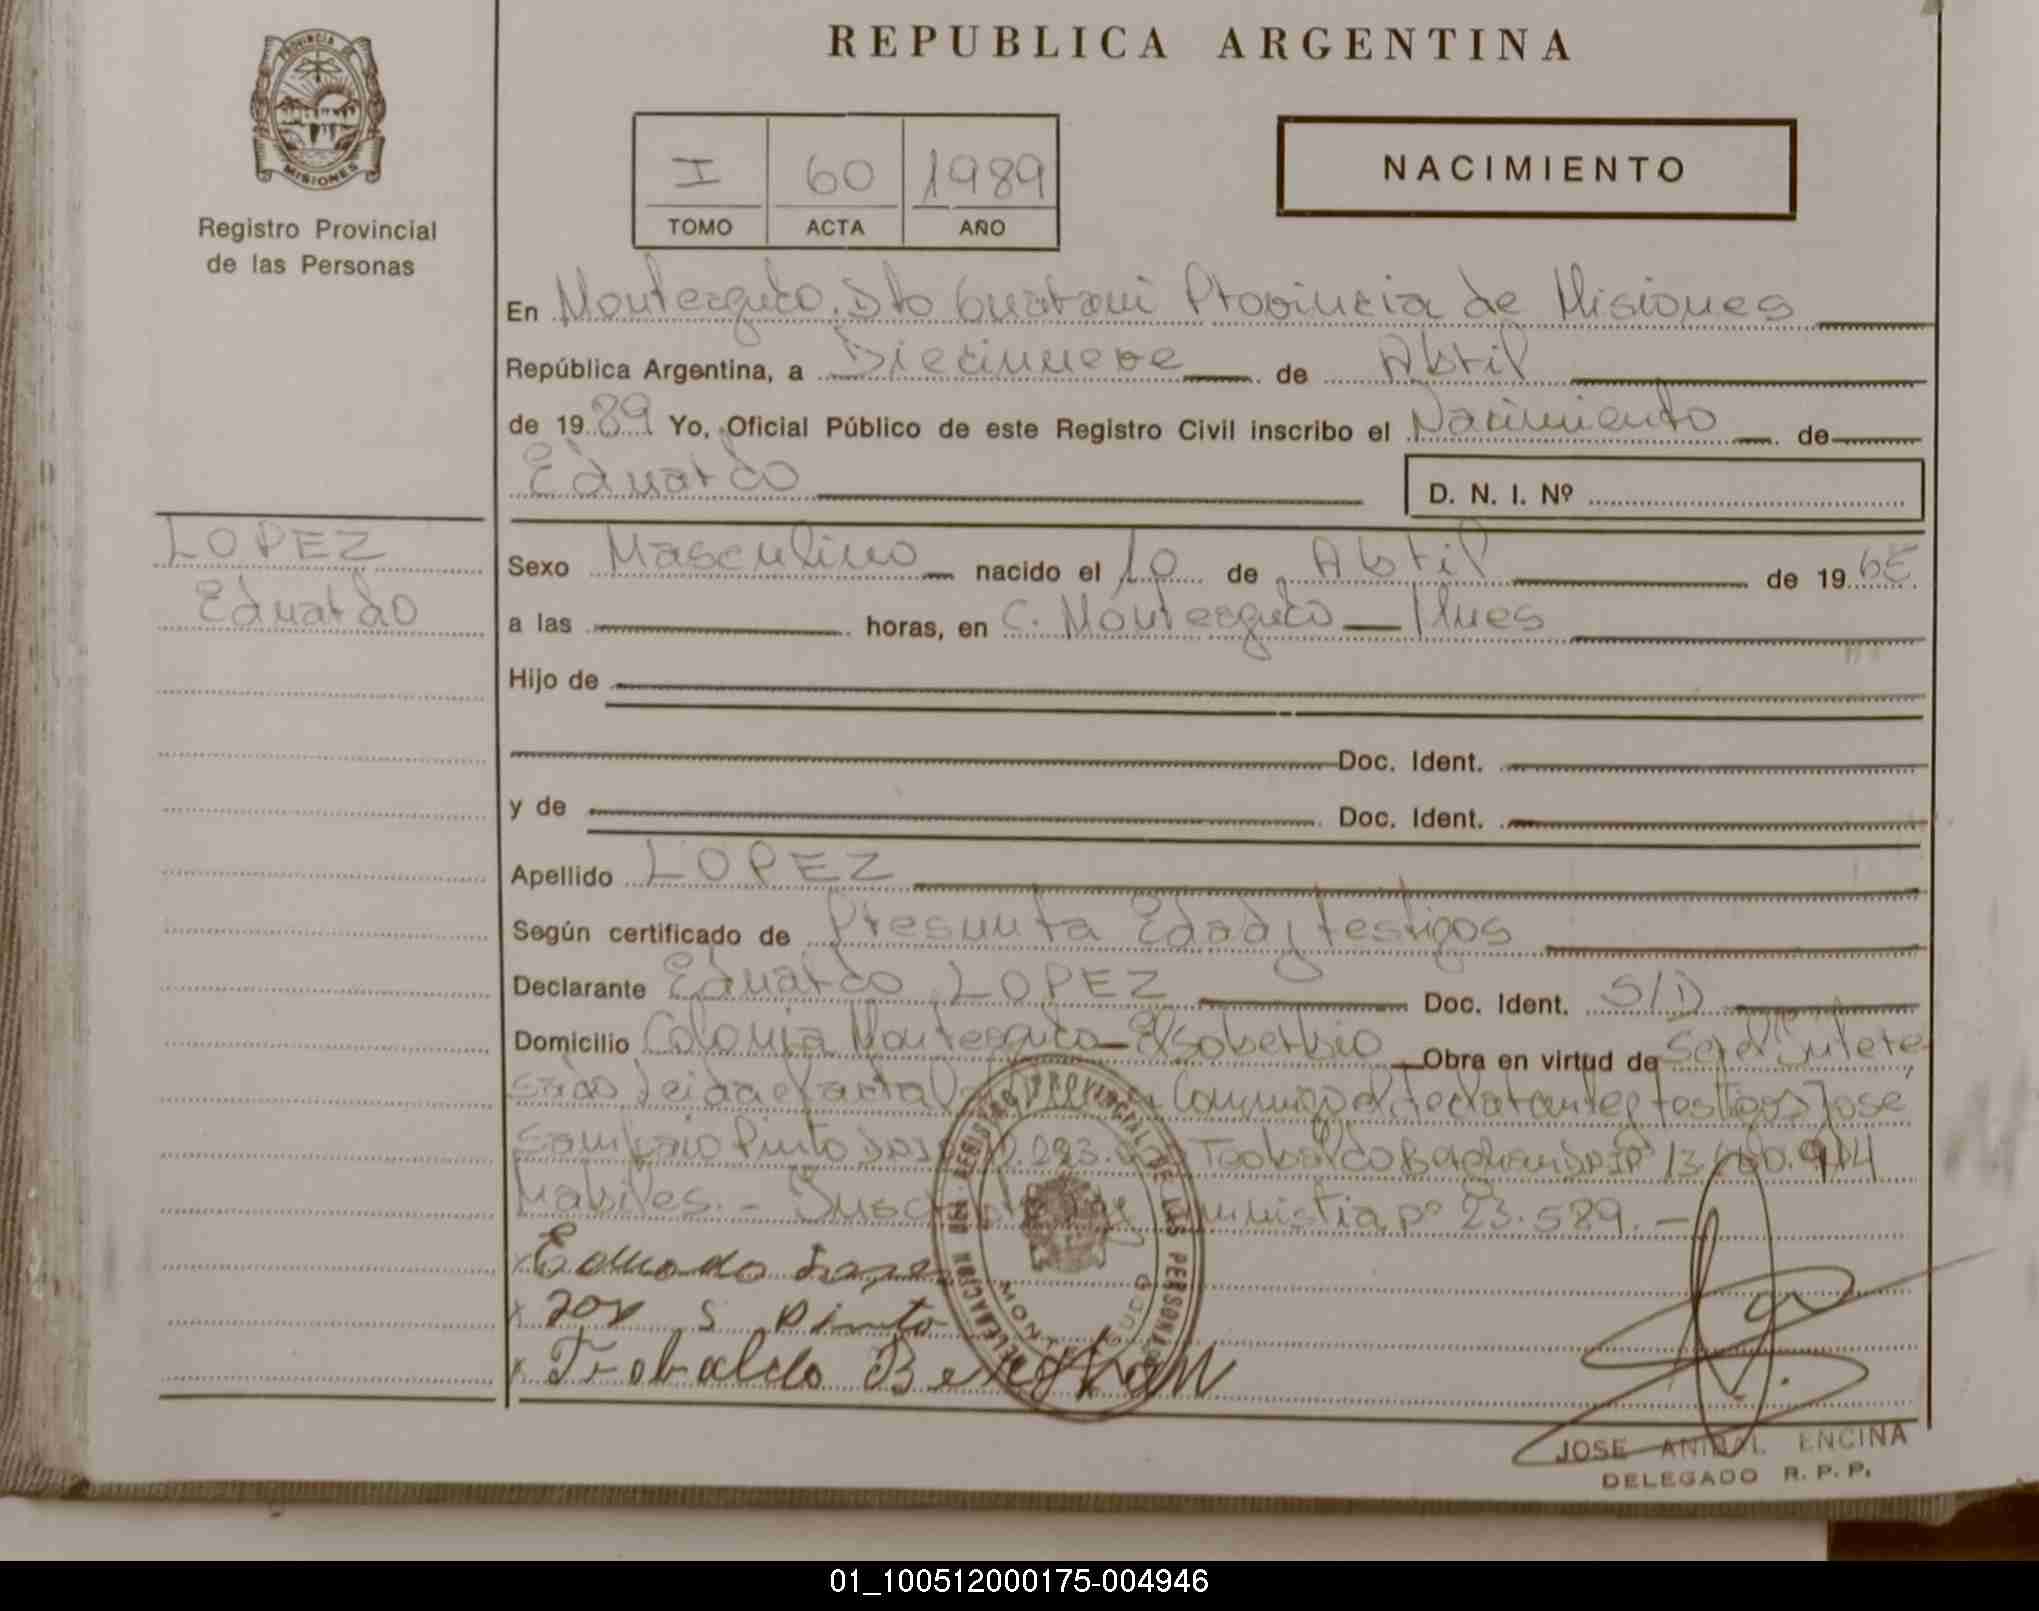 REPUBLICA ARGENTINA
PROVINCIA DE
MISIONES
Registro Provincial
de las Personas
I 60 1989
TOMO ACTA AÑO
NACIMIENTO
En Monteagudo. Dto Guarani Provincia de Misiones
República Argentina, a Diecinueve de Abril
de 1989 Yo, Oficial Público de este Registro Civil inscribo el Nacimiento de
Eduardo
D. N. I. Nº
LOPEZ
Eduardo
Sexo Masculino nacido el 10 de Abril de 19
a las horas, en C. Monteagudo Mnes
Hijo de
Doc. Ident.
y de Doc. Ident.
Apellido LOPEZ
Según certificado de Presunta Edad y testigos
Declarante Eduardo LOPEZ Doc. Ident. S/D
Domicilio Colonia Monteagudo - El Soberbio Obra en virtud de Ser el intere
sado leida el acta conmigo el declarante y testigos José
Pinto 13. 914
habiles. - amnistia nº 23.589. -
Eduardo
S Pinto
Teobaldo
REGISTRO PROVINCIAL DE LAS PERSONAS
DELEGACION
JOSE ANIBAL ENCINA
DELEGADO R. P. P.
01_100512000175-004946